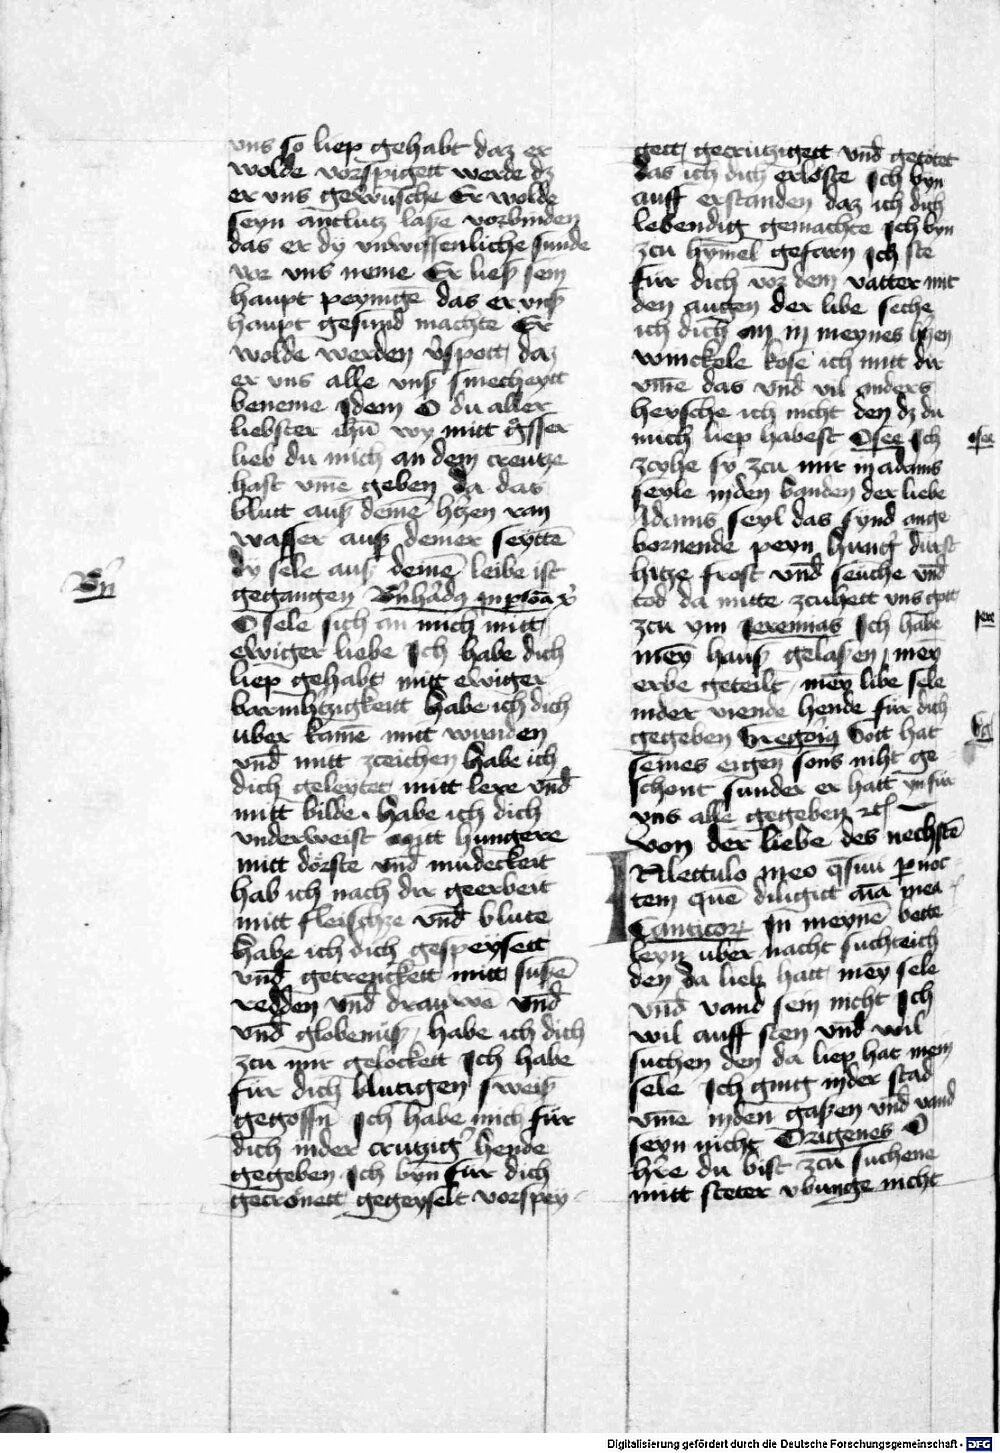 vns so liep gehabt daz er
wolde vorspigett werde dz
er vns gewusche Er wolde
seyn antlutz laße vorbinden
das er dy vnwissenliche sunde
vor vns neme Er ließ sein
haupt peynigē das er vnß
haupt gesund machte Er
wolde werden v̉spott daz
er vns alle vnß smecheytt
beneme Idem O du aller
liebster ih̄u wy mitt gͦsser
lieb du mich an dem creutze
hast vm̄e geben da das
blutt auß deinē h̉tzen ran
wasser auß deiner seyttē
dy sele auß deinē leibe ist
gegangen Bn̉hād9 in p̱sōa xp̄i
O sele sich an mich mitt
ewiger liebe Ich habe dich
liep gehabt mitt ewiger
barmh̉tzigkeitt habe ich dich
uber kamē mitt wunden
vnd̄ mitt zceichen habe ich
dich geleytet mitt lere vnd̄
mitt bilde habe ich dich
vnderweist Mitt hungere
mitt dörste vnd̄ mudeckeit
hab ich nach dir geerbeit
mitt fleischze vnd̄ blute
habe ich dich gespeysett
vnd̄ getrenckett mitt sußē
redden vnd̄ drauwē vnd̄
vnd̄ globenuß habe ich dich
zcu mir gelockett Ich habe
für dich blutigen sweiß
gegossn̄ Ich habe mich für
dich inder crutzig̉ hende
gegeben Ich byn für dich
gecrönett gegeyselt vorspey
Bn̉
gett gecrutzigett vnd̄ getötet
das ich dich erlöste Ich byn
auff erstanden daz ich dich
lebendig gemachte Ich byn
zcu hȳmel gefarn Ich ste
für dich vor dem vatter mit
den augen der libe seche
ich dich an in meynes h̉tzen
winckele kose ich mitt dir
vm̄e das vnd̄ vil anders
heysche ich nicht den dz du
mich liep habest Osee Ich
zcyhe sy zcu mir in adams
seyle inden banden der liebe
Adams seyl das synd ange
bornende peyn hung̉ durst
hitze frost vnd̄ seuche vnd̄
tod da mitte zcuhett vns gott
zcu ym Jeremias Ich habe
mey̅ hauß gelaßen mey̅
erbe geteilt mey̅ libe sele
inder viende hende für dich
gegeben Gregōi9 Gott hat
seines eigen sons niht ge
schont sunder er hatt yn für
vns alle gegeben ꝛc
Von der liebe des nechstē
IN lectulo meo q̄siui ꝑ noc
tem quē diligitt aīa mea
Canticoꝝ In meynē bette
leyn uber nacht suchte ich
den da lieb hatt mey̅ sele
vnd̄ vand sein nicht Ich
wil auff sten vnd̄ wil
suchen den da liep hat mein
sele Ich ging inder stad
vm̄e inden gaßen vnd̄ vand
seyn nicht Origenes O
h̉re du bist zcu suchene
mitt steter vbunge nicht
osee
Jere
Digitalisierung gefördert durch die Deutsche Forschungsgemeinschaft - DFG